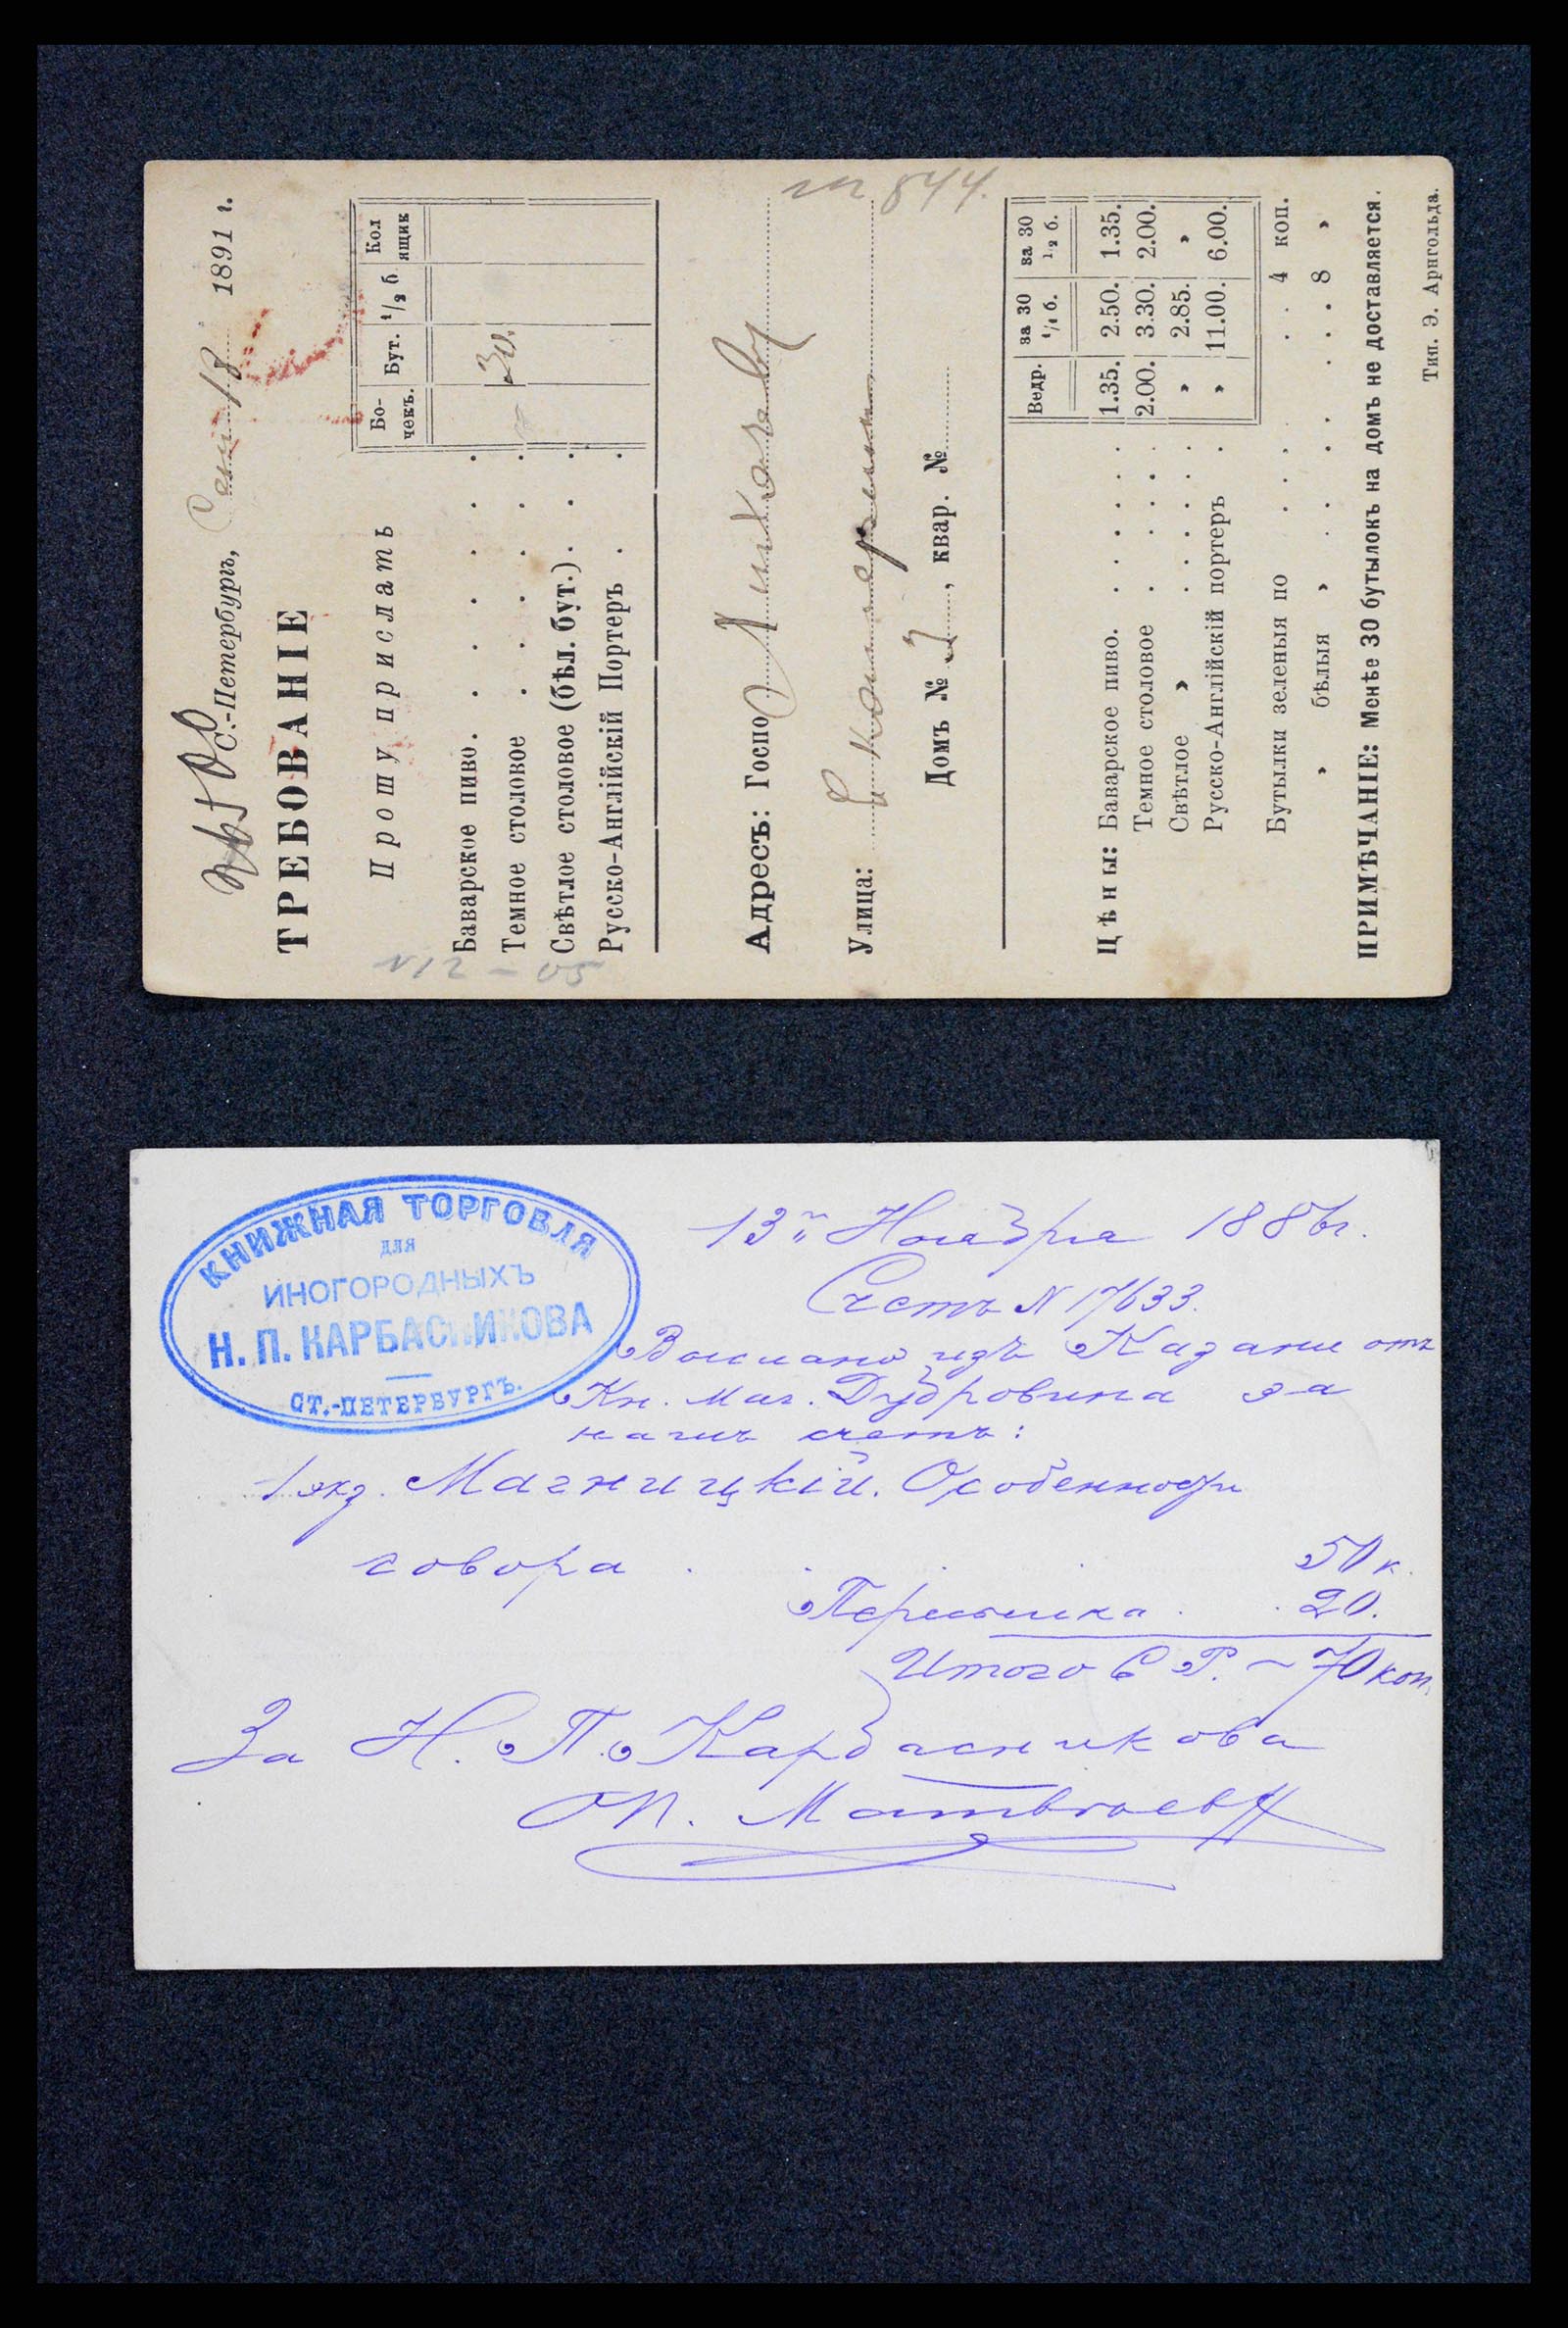 С.-Петербургъ, Сен 18 1891 г.
ТРЕБОВАНІЕ
Прошу прислать
Бо-чекъ. Бут. 1/2 б Кол ящик
Баварское пиво.
Темное столовое 30.
Свѣтлое столовое (бѣл. бут.)
Русско-Англійскій Портеръ
N12-05
844.
Адресъ: Госпо
Улица:
Домъ №, квар. №
Ведр. за 30 1/1 б. за 30 1/2 б.
Цѣны: Баварское пиво. 1.35. 2.50. 1.35.
Темное столовое 2.00. 3.30. 2.00.
Свѣтлое » » 2.85. »
Русско-Англійскій портеръ » 11.00. 6.00.
Бутылки зеленыя по 4 коп.
» бѣлыя » 8 »
ПРИМѢЧАНІЕ: Менѣе 30 бутылокъ на домъ не доставляется.
Тип. Э. Арнгольда.
КНИЖНАЯ ТОРГОВЛЯ
для
ИНОГОРОДНЫХЪ
Н. П. КАРБАСНИКОВА
СТ.-ПЕТЕРБУРГЪ.
13го Ноября 1886г.
Счетъ N 17633.
Выслано изъ Казани отъ
Кн. маг. Дубровина за
нашъ счетъ:
1 экз. Магницкій. Особенности
говора 50 к.
Пересылка 20.
Итого С Р. ~ 70 коп.
За Н. П. Карбасникова
П. Матвѣевъ